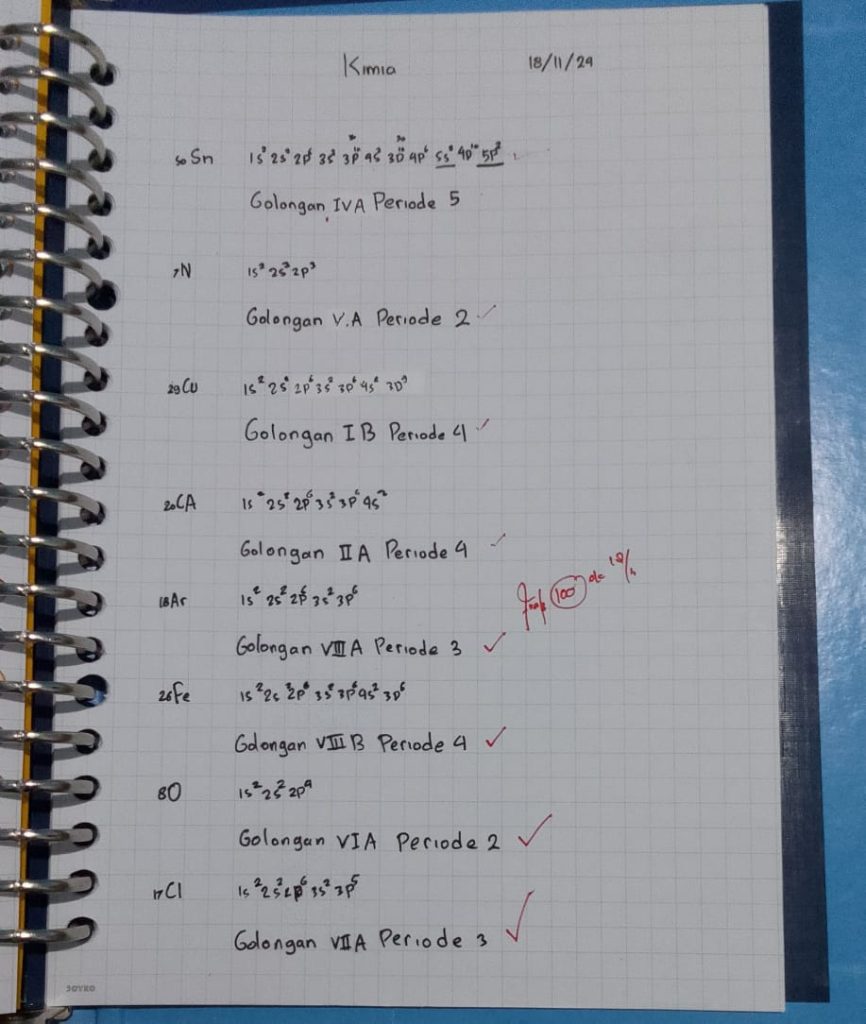 Kimia 18/11/24
50Sn 1s² 2s² 2p⁶ 3s² 3p 4s² 3D¹⁰ 4p⁶ 5s² 4D¹⁰ 5p²
Golongan IVA Periode 5
7N 1s² 2s² 2p³
Golongan V.A Periode 2 ✓
29Cu 1s² 2s² 2p⁶ 3s² 3p⁶ 4s² 3D⁹
Golongan I B Periode 4 ✓
20CA 1s² 2s² 2p⁶ 3s² 3p⁶ 4s²
Golongan II A Periode 4 ✓
18Ar 1s² 2s² 2p⁶ 3s² 3p⁶
100
Golongan VIII A Periode 3 ✓
26Fe 1s² 2s² 2p⁶ 3s² 3p⁶ 4s² 3D⁶
Golongan VIII B Periode 4 ✓
8O 1s² 2s² 2p⁴
Golongan VI A Periode 2 ✓
17Cl 1s² 2s² 2p⁶ 3s² 3p⁵
Golongan VII A Periode 3 ✓
JOYKO